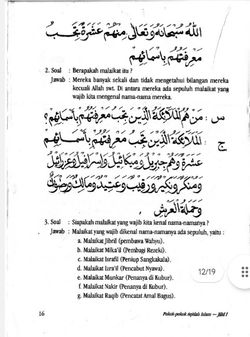 الله سبحانه وتعالى منهم عشرة يجب
معرفتهم بأسمائهم
2. Soal : Berapakah malaikat itu ?
Jawab : Mereka banyak sekali dan tidak mengetahui bilangan mereka
kecuali Allah swt. Di antara mereka ada sepuluh malaikat yang
wajib kita mengenal nama-nama mereka.
س : من هم الملائكة الذين يجب معرفتهم بأسمائهم؟
ج : الملائكة الذين يجب معرفتهم بأسمائهم
عشرة وهم جبريل وميكائيل وإسرافيل وعزرائيل
ومنكر ونكير ورقيب وعتيد ومالك ورضوان
وحملة العرش
3. Soal : Siapakah malaikat yang wajib kita kenal nama-namanya ?
Jawab : Malaikat yang wajib dikenal nama-namanya ada sepuluh, yaitu :
a. Malaikat Jibril (pembawa Wahyu).
b. Malaikat Mika'il (Pembagi Rezeki).
c. Malaikat Israfil (Peniup Sangkakala).
d. Malaikat Izra'il (Pencabut Nyawa).
e. Malaikat Munkar (Penanya di Kubur).
f. Malaikat Nakir (Penanya di Kubur).
g. Malaikat Raqib (Pencatat Amal Bagus).
12/19
16
Pokok-pokok Aqidah Islam — Jilid 1